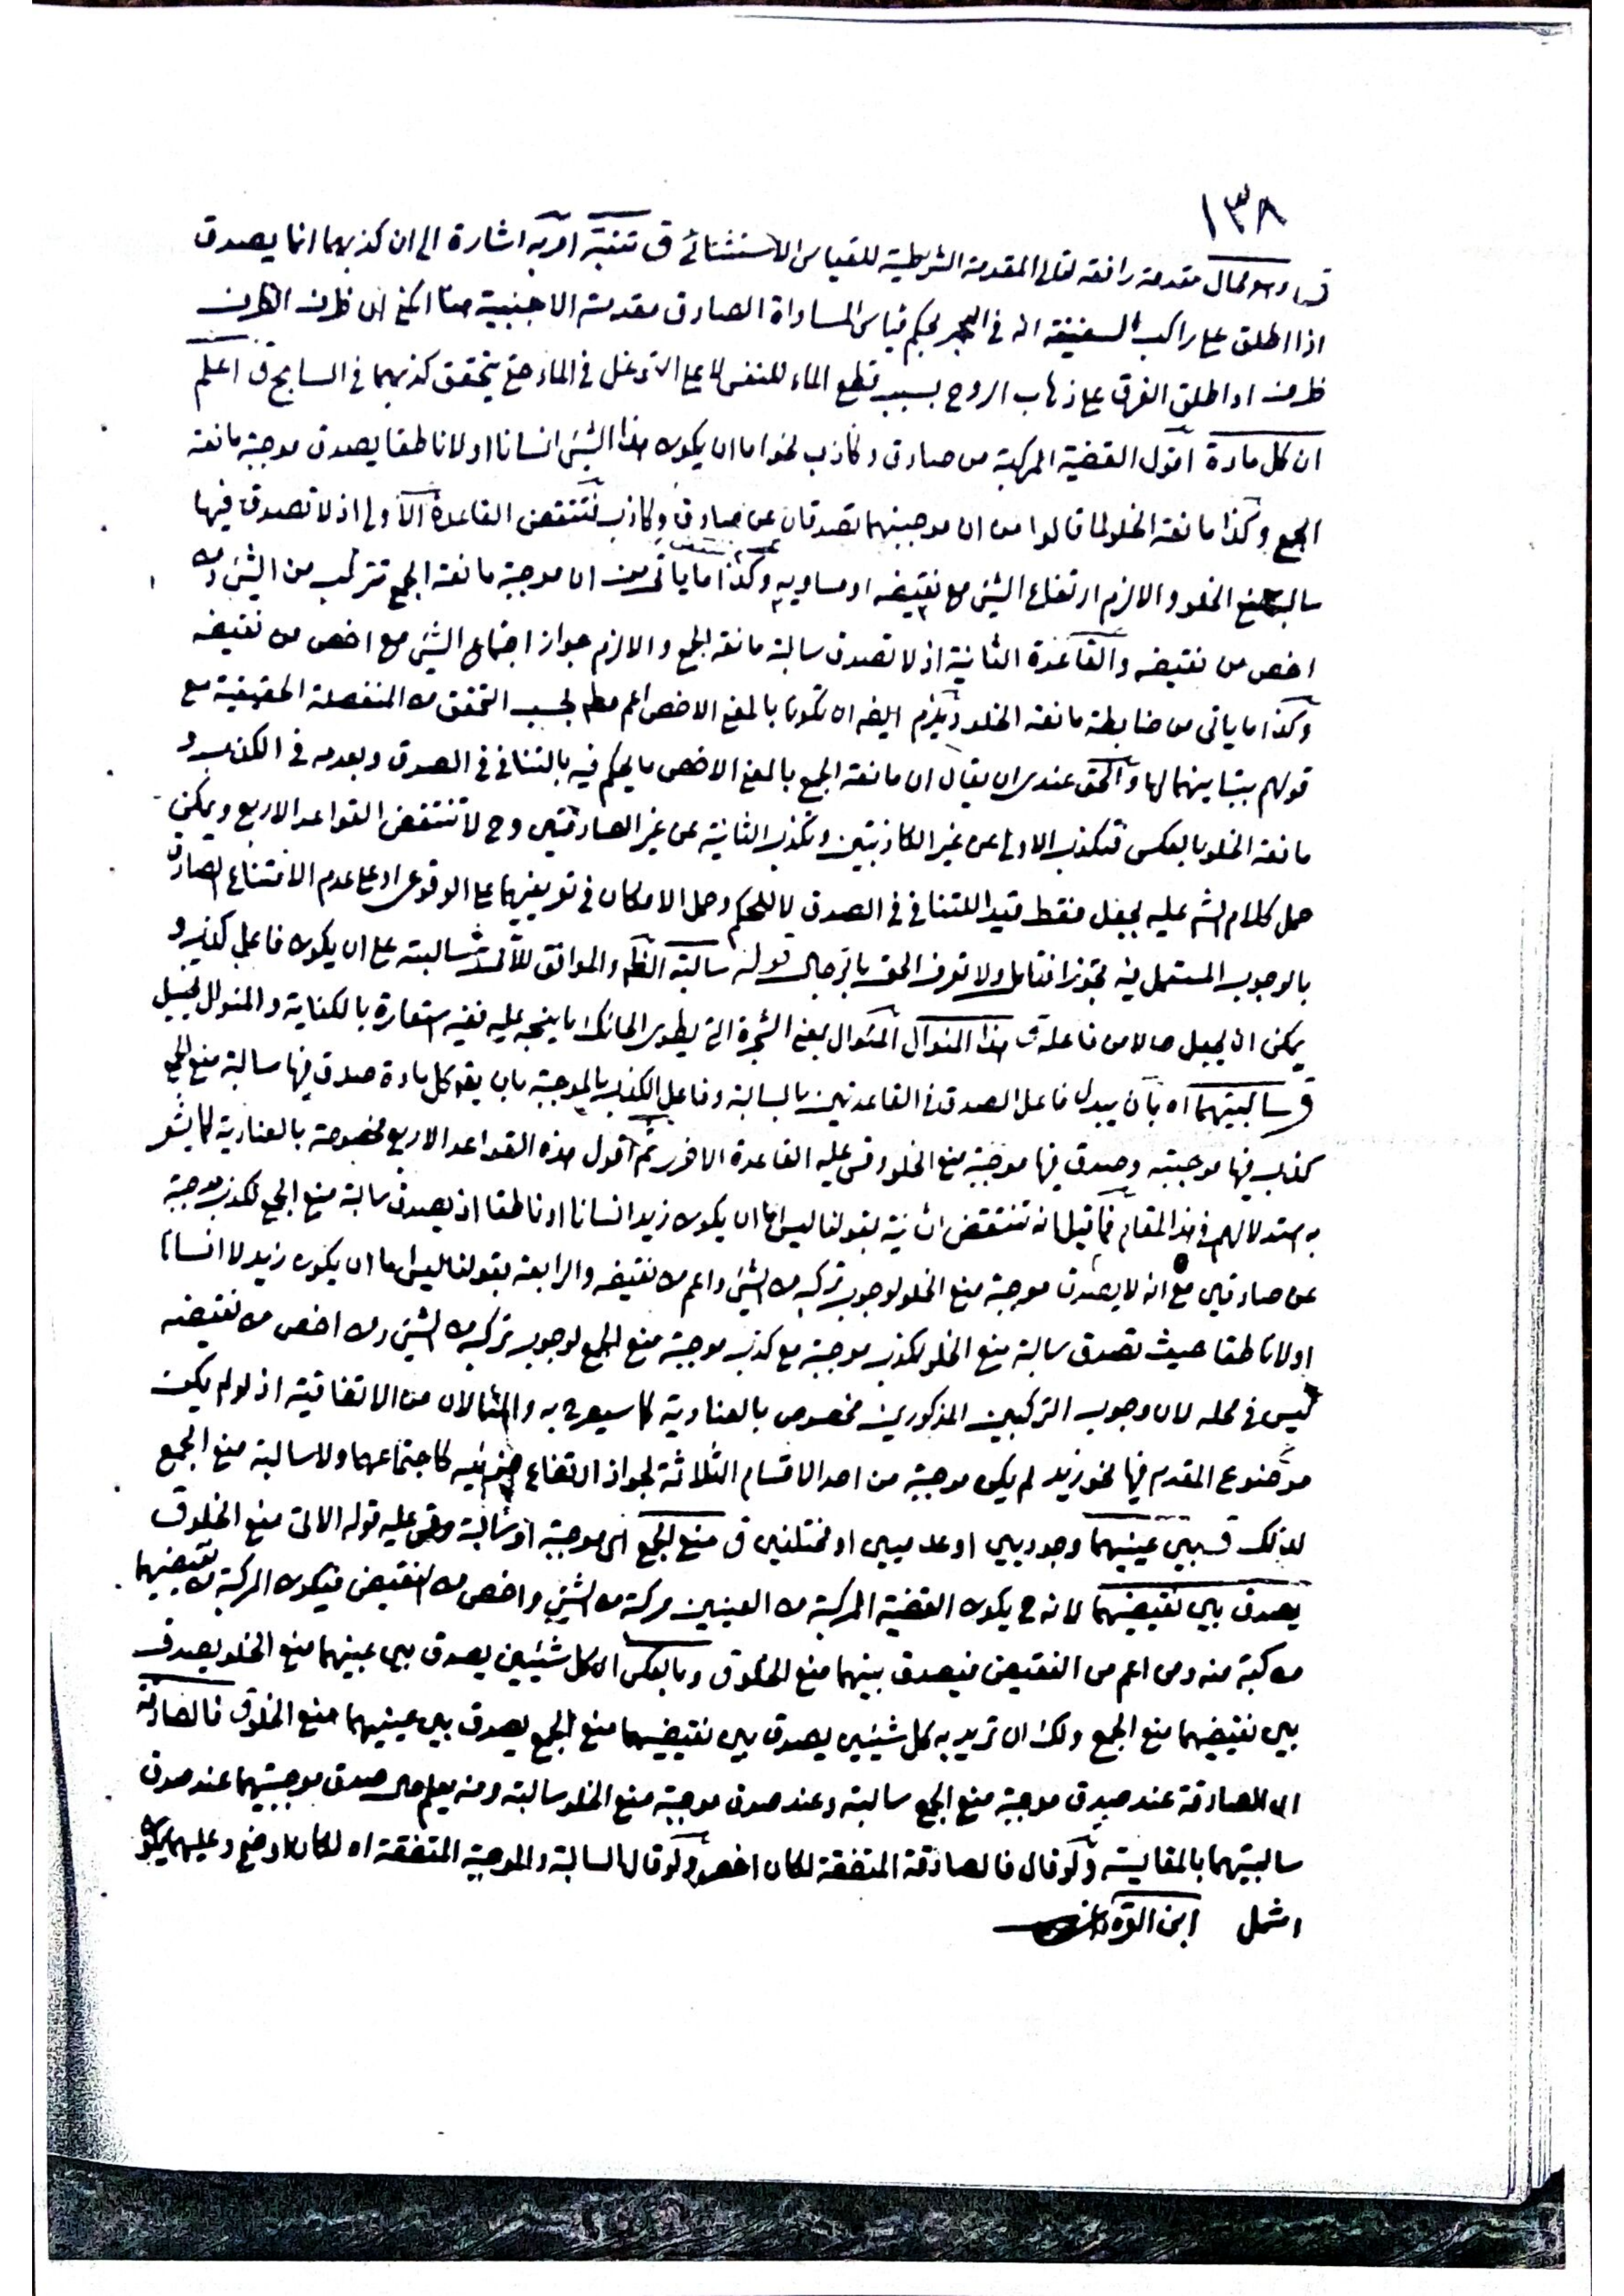 ١٣٨
قـ وهو محال مقدمة رافعة لتالي المقدمة الشرطية للقياس الاستثنائي ق تتبة اربه اشارة الى ان كذبهما انما يصدق
اذا اطلق على راكب السفينة انه في البحر بحكم قياس المساواة الصادق مقدمته الاجنبية هنا اعني ان ظرف الظرف
ظرف او اطلق الغرق على ذهاب الروح بسبب قطع الماء للنفس لا على التوغل في الماء حتى يتحقق كذبهما في السابح ق اعلم
ان كل مادة اقول القضية المركبة من صادق وكاذب نحو اما ان يكون هذا الشئ انسانا او لا ناطقا يصدق موجبة مانعة
الجمع وكذا مانعة الخلو لما قالوا من ان موجبتهما تصدقان عن صادق وكاذب فتنتقض القاعدة الاولى اذ لا تصدق فيها
سالبة منع الخلو والا لزم ارتفاع الشئ مع نقيضه او مساويه وكذا ما ياتي من ان موجبة مانعة الجمع تتركب من الشئ ومن
اخص من نقيضه والقاعدة الثانية اذ لا تصدق سالبة مانعة الجمع والا لزم جواز اجتماع الشئ مع اخص من نقيضه
وكذا ما ياتي من ضابطة مانعة الخلو ويلزم ايضه ان تكونا بالمعنى الاخص اعم مطم بحسب التحقق من المنفصلة الحقيقية مع
قولهم بتباينهما لها والحق عندي ان يقال ان مانعة الجمع بالمعنى الاخص ما يحكم فيه بالتنافي في الصدق وبعدمه في الكذب و
مانعة الخلو بالعكس فتكذب الاولى عن غير الكاذبتين وتكذب الثانية عن غير الصادقتين وح لا تنتقض القواعد الاربع ويمكن
حمل كلام الشم عليه بجعل فقط قيدا للتنافي في الصدق لا للحكم وحمل الامكان في تعريفيهما على الوقوع او على عدم الامتناع الصادق
بالوجوب المستعمل فيه تجوزا فتامل ولا تعرف الحق بالرجال قوله سالبة الظم والموافق للآتي سالبته على ان يكون فاعل كذب و
يمكن ان يجعل حالا من فاعله ق هذا المنوال المنوال يعني الشجرة التي يطوى الحائك ما ينسجه عليه ففيه استعارة بالكناية والمنوال تخييل
ق سالبتيهما اه بان يبدل فاعل الصدق في القاعدتين بالسالبة وفاعل الكذب بالموجبة بان يقه كل مادة صدق فيها سالبة منع الجمع
كذب فيها موجبته وصدق فيها موجبة منع الخلو وقس عليه القاعدة الاخرى ثم اقول هذه القواعد الاربع مخصوصة بالعنادية كما يشعر
به استدلالهم في هذا المقام فما قيل انه تنتقض الثانية بقولنا ليس اما ان يكون زيد انسانا او ناطقا اذ يصدق سالبة منع الجمع لكذب موجبة
عن صادقين مع انه لا يصدق موجبة منع الخلو لوجوب تركبه من الشئ واعم من نقيضه والرابعة بقولنا ليس اما ان يكون زيد لا انسانا
او لا ناطقا حيث تصدق سالبة منع الخلو لكذب موجبة مع كذب موجبة منع الجمع لوجوب تركبه من الشئ ومن اخص من نقيضه
ليس في محله لان وجوب التركبين المذكورين مخصوص بالعنادية كما سيصرح به والمثالان من الاتفاقية اذ لو لم يكن
موضوع المقدم فيها نحو زيد لم يكن موجبة من احد الاقسام الثلاثة لجواز ارتفاع جزئيه كاجتماعهما ولا سالبة منع الجمع
لذلك ق بين عينيهما وجوديين او عدميين او مختلفين ق منع الجمع اى موجبة او سالبة وقس عليه قوله الاتي منع الخلو ق
يصدق بين نقيضيهما لانه ح يكون القضية المركبة من العينين مركبة من الشئ واخص من النقيض فيكون المركبة من نقيضيهما
مركبة منه ومن اعم من النقيض فيصدق بينهما منع الخلو ق وبالعكس اى كل شيئين يصدق بين عينيهما منع الخلو يصدق
بين نقيضيهما منع الجمع ولك ان تريد به كل شيئين يصدق بين نقيضيهما منع الجمع يصدق بين عينيهما منع الخلو ق فالصادقة
اى الصادقة عند صدق موجبة منع الجمع سالبة وعند صدق موجبة منع الخلو سالبته ومنه يعلم حال صدق موجبتيهما عند صدق
سالبتيهما بالمقايسة ولو قال فالصادقة المتفقة لكان اخصر ولو قال السالبة والموجبة المتفقة اه لكان اوضح وعليهما يكون
اشمل ابن القره داغي